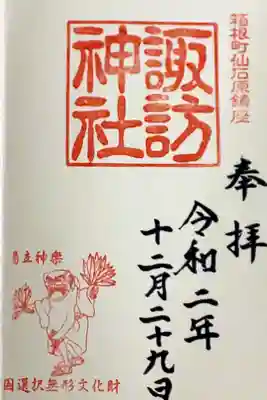 箱根町仙石原鎮座
奉拝
諏訪
神社
令和二年
十二月二十九日
湯立神楽
国選択無形文化財